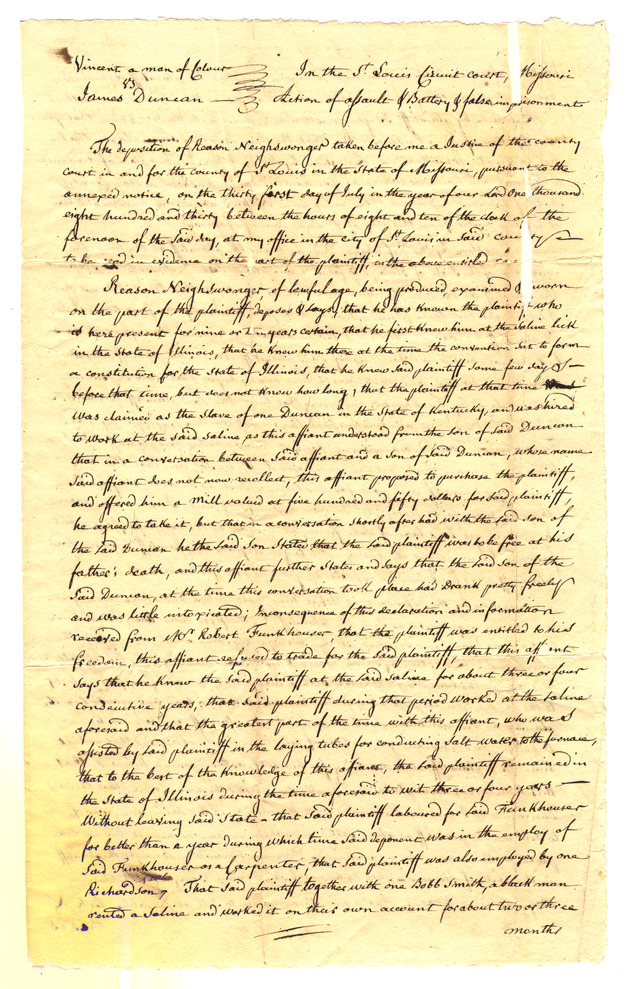 Vincent a man of Colour In the St. Louis Circuit court, Missouri
vs
James Duncan Action of assault & Battery & false imprisonment
The deposition of Reason Neighswonger taken before me a Justice of the county
court in and for the county of St Louis in the State of Missouri, pursuant to the
annexed notice, on the thirty first day of July in the year of our Lord One thousand
eight hundred and thirty between the hours of eight and ten of the clock of the
forenoon of the said day, at my office in the city of St Louis in said county
to be read in evidence on the part of the plaintiff in the above entitled
Reason Neighswonger, of lawful age, being produced, examined & sworn
on the part of the plaintiff, deposes & says, that he has known the plaintiff who
is here present for nine or ten years certain, that he first knew him at the Saline lick
in the State of Illinois, that he knew him there at the time the convention set to form
a constitution for the State of Illinois, that he knew said plaintiff some few days
before that time, but does not know how long, that the plaintiff at that time
was claimed as the slave of one Duncan in the State of Kentucky, and was hired
to work at the said saline as this affiant understood from the son of said Duncan
that in a conversation between said affiant and a son of said Duncan, whose name
said affiant does not now recollect, this affiant proposed to purchase the plaintiff,
and offered him a Mill valued at five hundred and fifty dollars for said plaintiff,
he agreed to take it, but that in a conversation shortly after had with the said son of
the said Duncan he the said son stated that the said plaintiff was to be free at his
father's death, and this affiant further states and says that the said son of the
said Duncan, at the time this conversation took place had drank pretty freely
and was little intoxicated; Inconsequence of this declaration and information
received from Mr. Robert Funkhouser, that the plaintiff was entitled to his
freedom, this affiant refused to trade for the said plaintiff, that this affiant
says that he knew the said plaintiff at the said saline for about three or four
consecutive years, that said plaintiff during that period worked at the saline
aforesaid and that the greatest part of the time with this affiant, who was
assisted by said plaintiff in the laying tubes for conducting salt water to the furnace,
that to the best of the knowledge of this affiant, the said plaintiff remained in
the State of Illinois during the time aforesaid to wit three or four years
without leaving said State - that said plaintiff laboured for said Funkhouser
for better than a year during which time said deponent was in the employ of
said Funkhouser as a Carpenter, that said plaintiff was also employed by one
Richardson, That said plaintiff together with one Bobb Smith, a black man
rented a Saline and worked it on their own account for about two or three
months